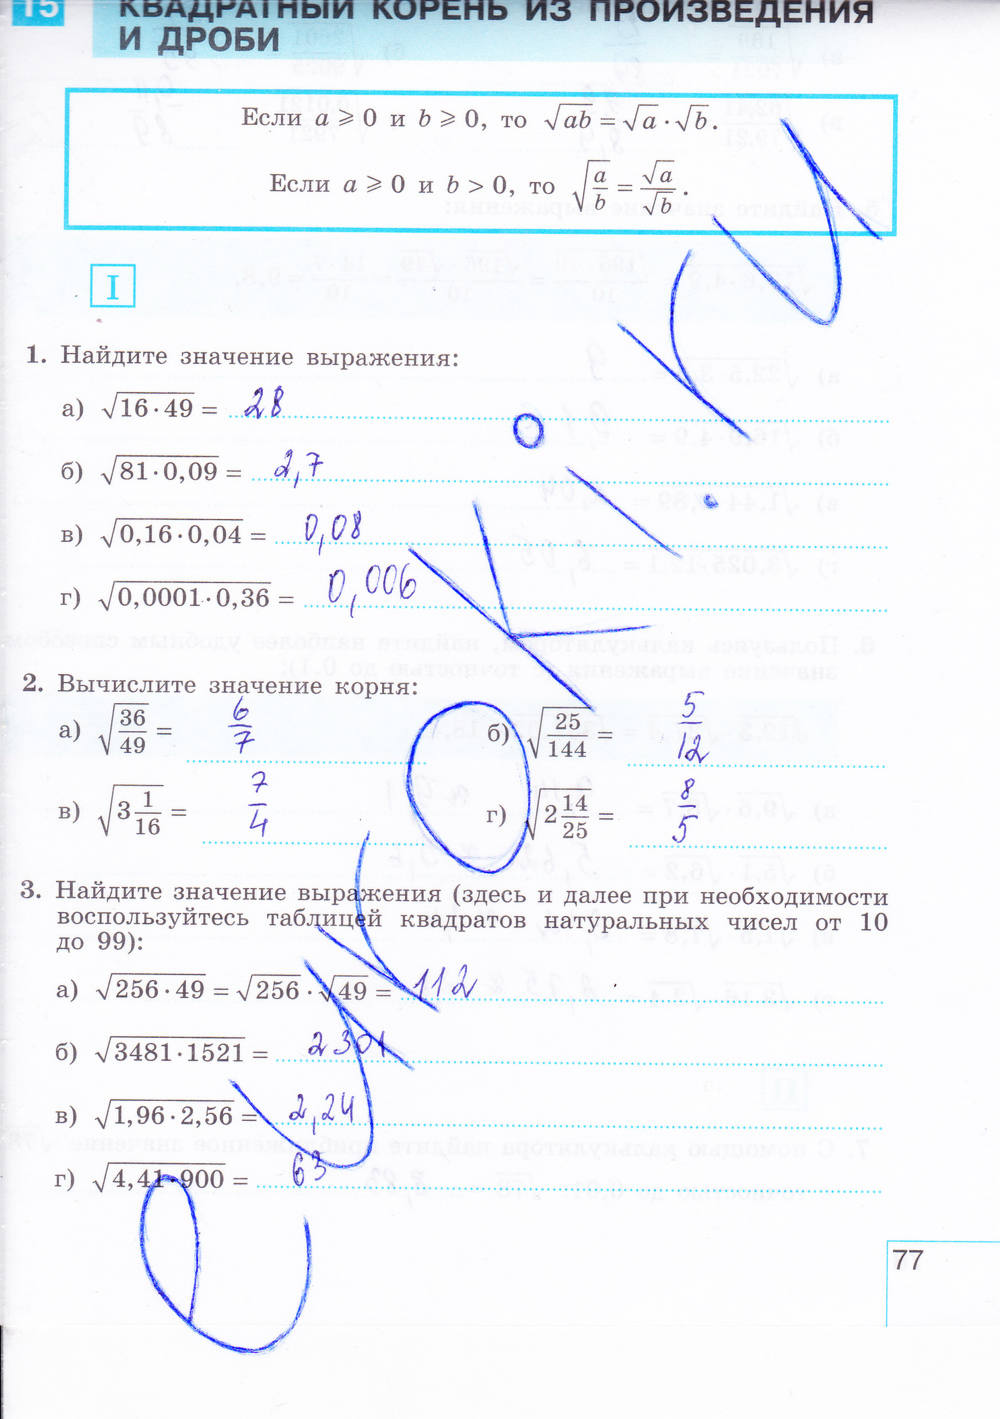 15 КВАДРАТНЫЙ КОРЕНЬ ИЗ ПРОИЗВЕДЕНИЯ
И ДРОБИ
Если a ⩾ 0 и b ⩾ 0, то √ab = √a · √b.
Если a ⩾ 0 и b > 0, то √(a/b) = √a/√b.
I
1. Найдите значение выражения:
а) √(16 · 49) = 28
б) √(81 · 0,09) = 2,7
в) √(0,16 · 0,04) = 0,08
г) √(0,0001 · 0,36) = 0,006
2. Вычислите значение корня:
а) √(36/49) = 6/7 б) √(25/144) = 5/12
в) √(3 1/16) = 7/4 г) √(2 14/25) = 8/5
3. Найдите значение выражения (здесь и далее при необходимости
воспользуйтесь таблицей квадратов натуральных чисел от 10
до 99):
а) √(256 · 49) = √256 · √49 = 112
б) √(3481 · 1521) = 2301
в) √(1,96 · 2,56) = 2,24
г) √(4,41 · 900) = 63
77